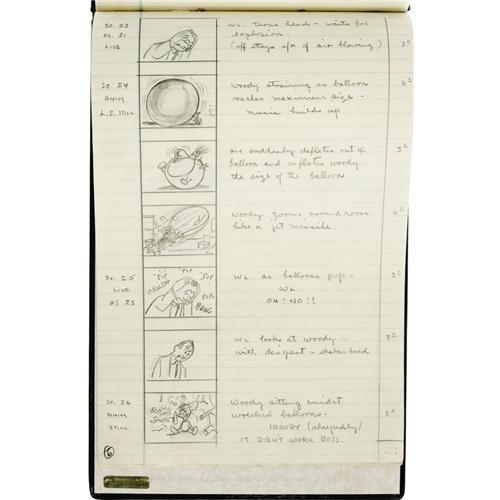 SC. 23
AS. 21
LIVE
WL. turns head - waits for
explosion.
(off stage sfx of air blowing)
SC. 24
ANIM
L.S. STILL
Woody straining as balloon
reaches maximum size -
music builds up
air suddenly deflates out of
balloon and inflates woody
the size of the balloon
Woody zooms around room
like a jet missile.
SC. 25
LIVE
AS 23
POP
POP
CRASH
POP
BANG
WL. as balloons pop -
WL.
OH! NO!!
WL looks at woody
with disgust - shakes head
SC. 26
ANIM
STILL
Woody sitting amidst
wrecked balloons -
WOODY (sheepishly)
IT DIDN'T WORK BOSS.
6